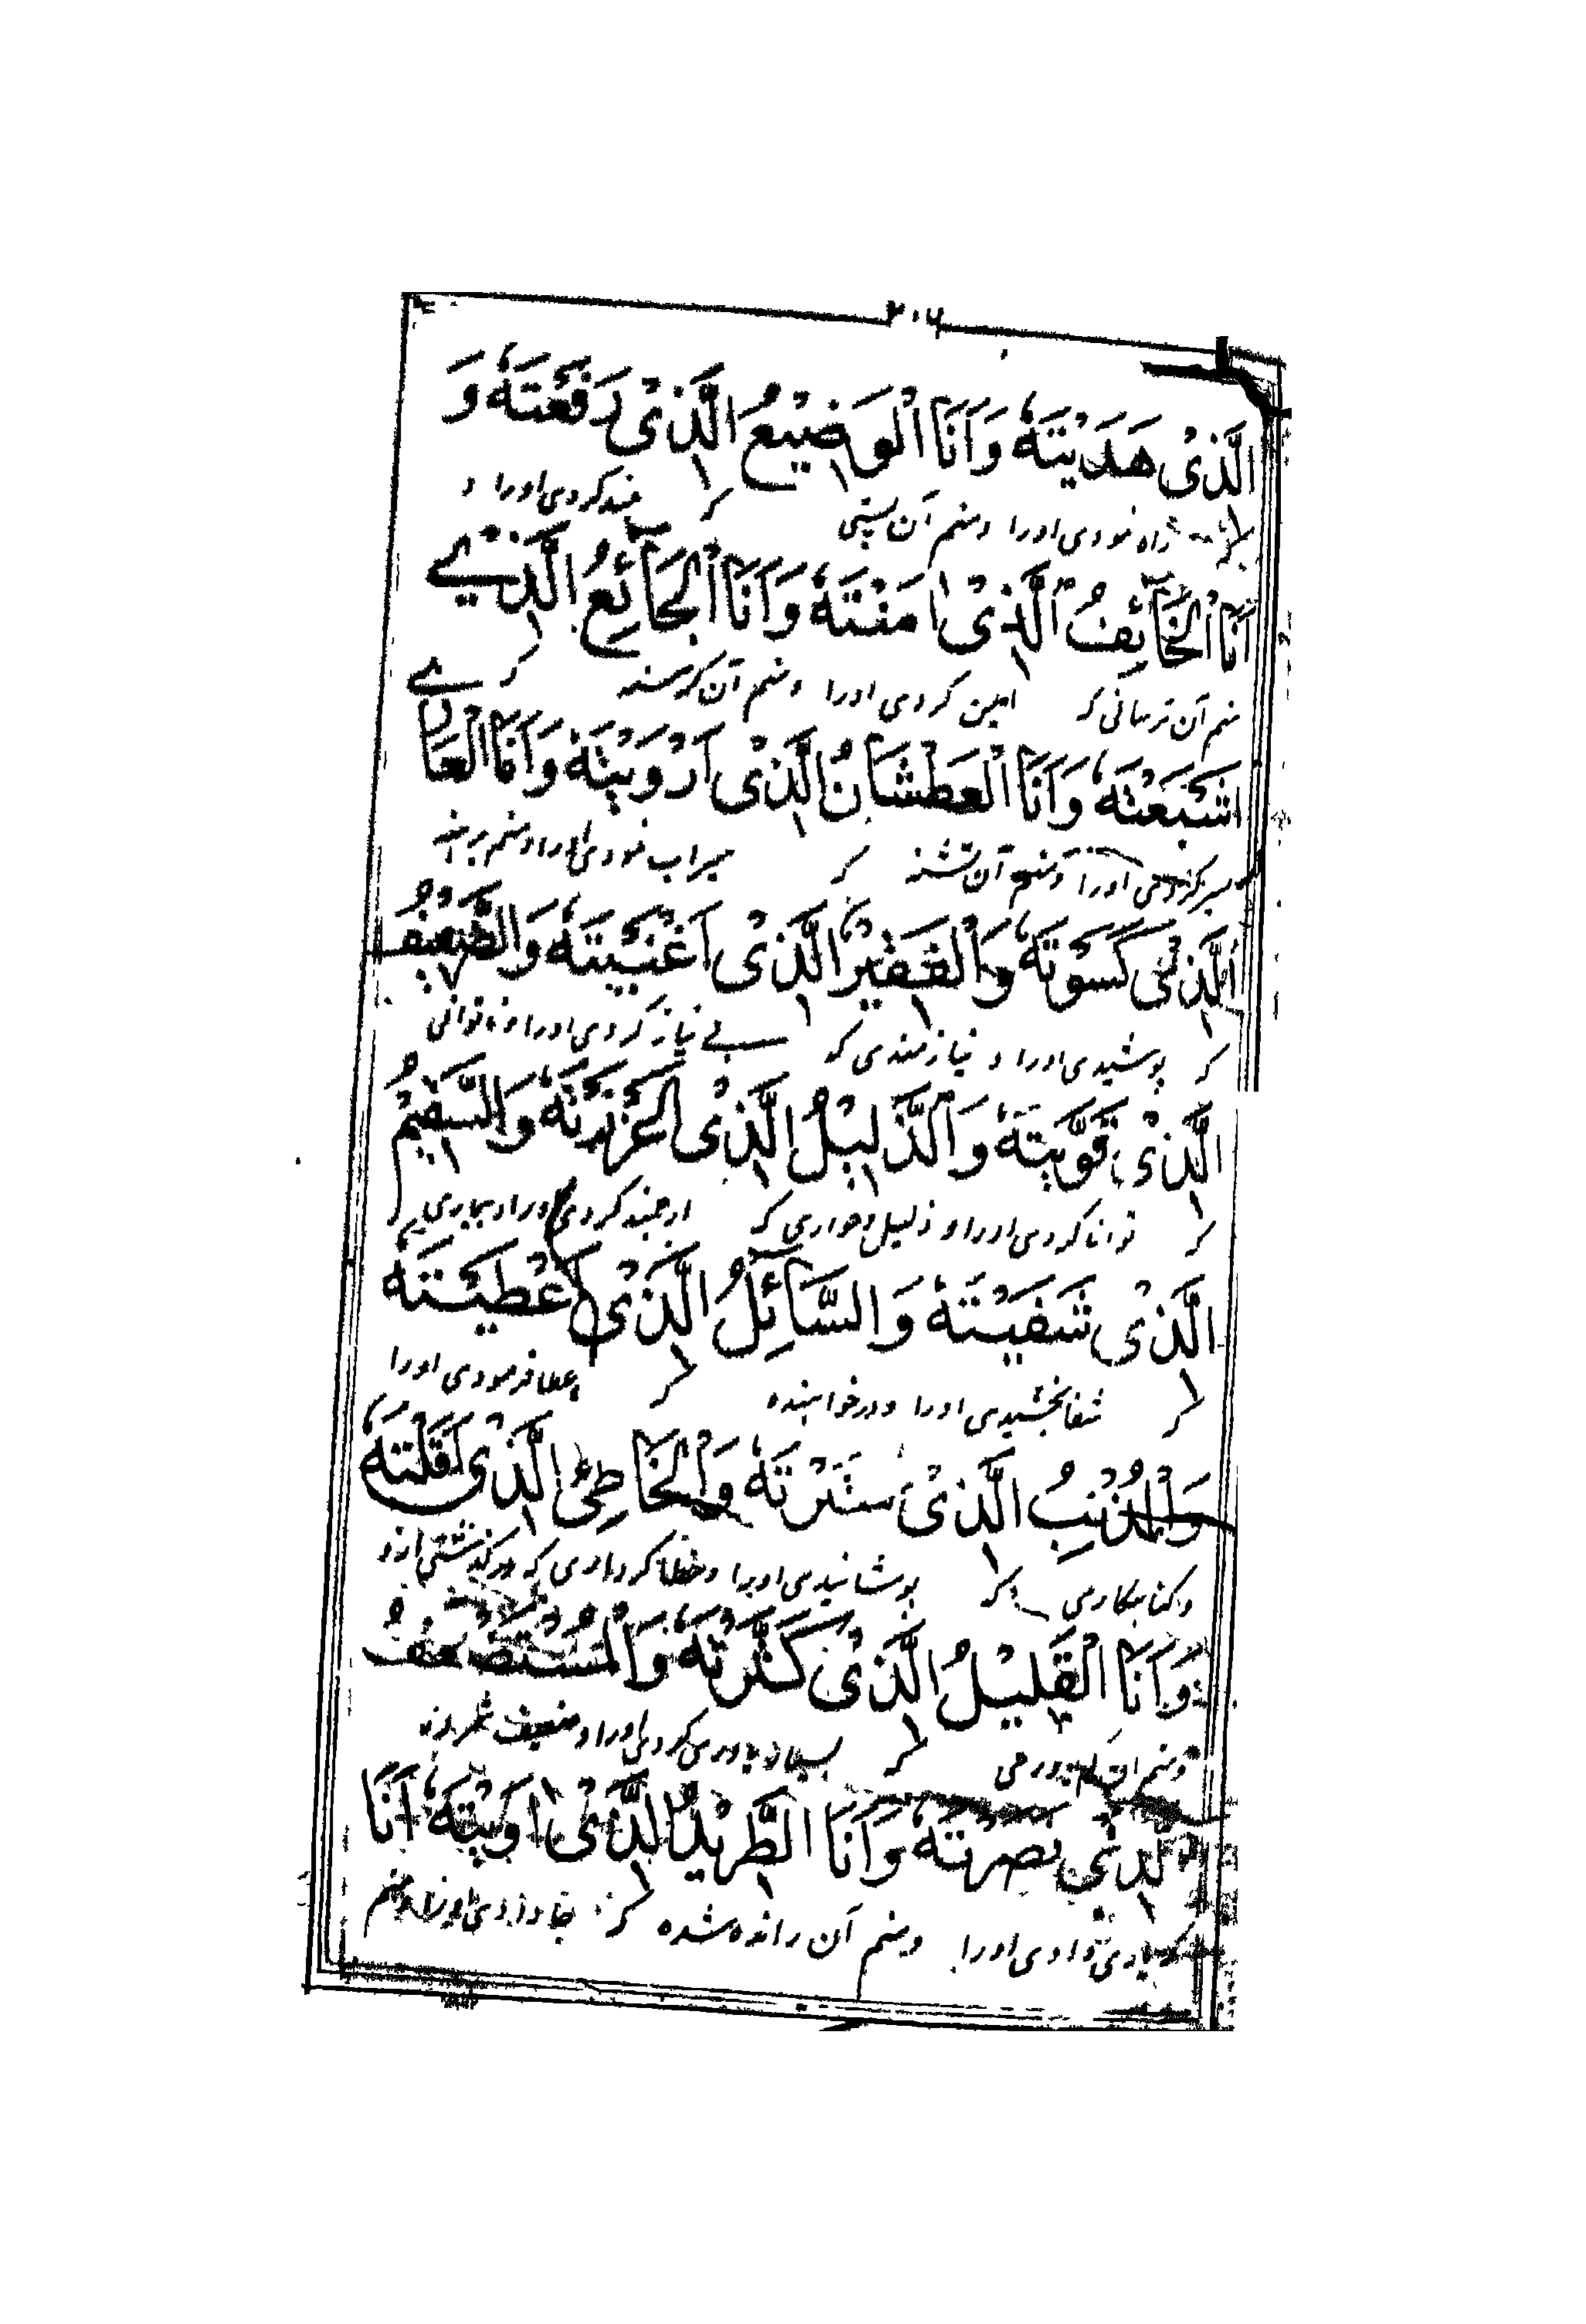 ۲۰۶
الَّذِیْ هَدَیْتَهٗ وَاَنَا الْوَضِیْعُ الَّذِیْ رَفَعْتَهٗ وَ
راه نمودی اورا ومنم آن پستی که بلند کردی اورا و
اَنَا الْخَآئِفُ الَّذِیْ اٰمَنْتَهٗ وَاَنَا الْجَآئِعُ الَّذِیْ
منم آن ترسانی که ایمن کردی اورا ومنم آن گرسنه که
اَشْبَعْتَهٗ وَاَنَا الْعَطْشَانُ الَّذِیْ اَرْوَیْتَهٗ وَاَنَا الْعَارِیْ
سیر کردی اورا ومنم آن تشنه که سیراب نمودی اورا ومنم برهنه
الَّذِیْ كَسَوْتَهٗ وَالْفَقِیْرُ الَّذِیْ اَغْنَیْتَهٗ وَالضَّعِیْفُ
که پوشیدی اورا و نیازمندی که بے نیاز کردی اورا وناتوانی
الَّذِیْ قَوَّیْتَهٗ وَالذَّلِیْلُ الَّذِیْ اَعْزَزْتَهٗ وَالسَّقِیْمُ
که توانا کردی اورا و ذلیل وخواری که ارجمند کردی اورا وبیماری
الَّذِیْ شَفَیْتَهٗ وَالسَّآئِلُ الَّذِیْ اَعْطَیْتَهٗ
که شفا بخشیدی اورا ودرخواهنده که عطا فرمودی اورا
وَالْمُذْنِبُ الَّذِیْ سَتَرْتَهٗ وَالْخَاطِئُ الَّذِیْ اَقَلْتَهٗ
وگناهکاری که پوشانیدی اورا وخطا کرداری که درگذشتی ازو
وَاَنَا الْقَلِیْلُ الَّذِیْ كَثَّرْتَهٗ وَالْمُسْتَضْعَفُ
ومنم که کردی اورا وضعیف شمرده
الَّذِیْ نَصَرْتَهٗ وَاَنَا الطَّرِیْدُ الَّذِیْ اٰوَیْتَهٗ اَنَا
که یاری دادی اورا ومنم آن رانده شده که جا دادی اورا ومنم